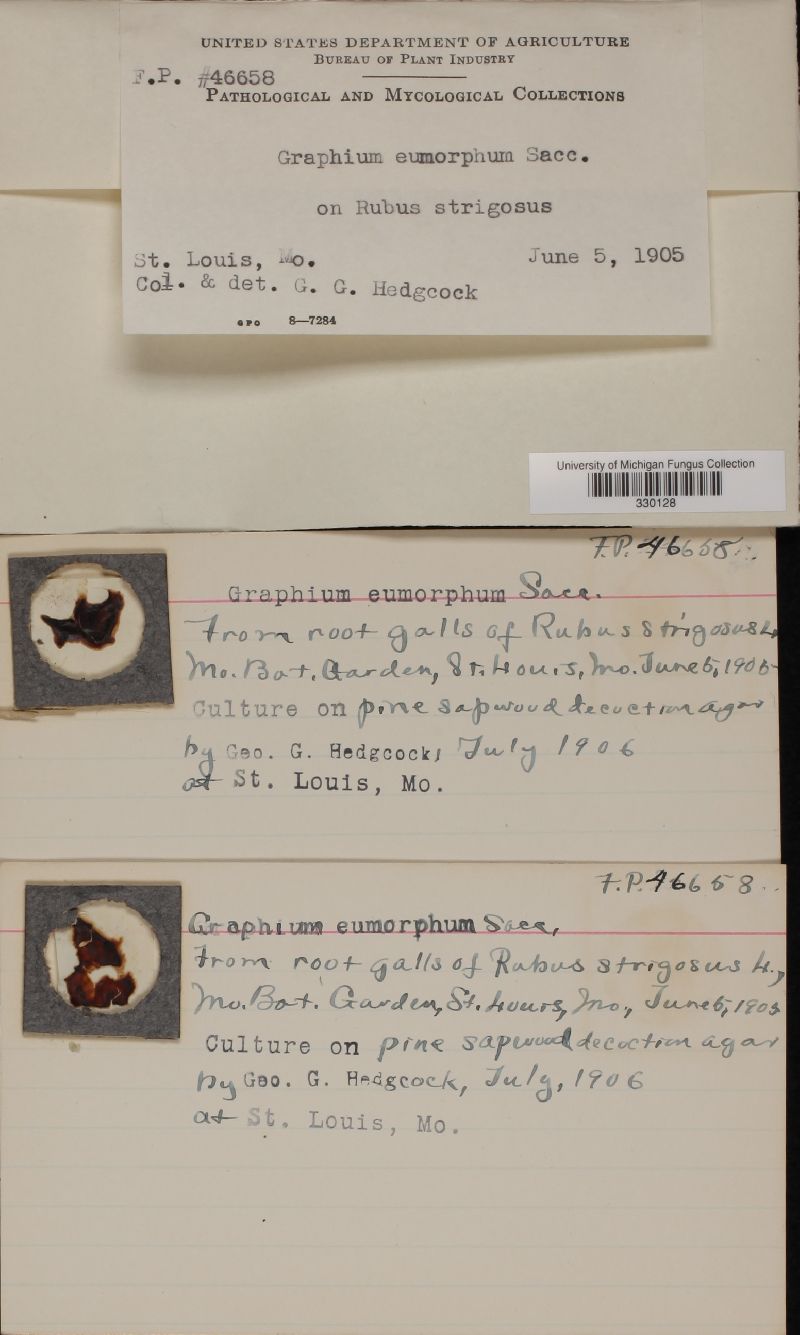 UNITED STATES DEPARTMENT OF AGRICULTURE
BUREAU OF PLANT INDUSTRY
F.P. #46658
PATHOLOGICAL AND MYCOLOGICAL COLLECTIONS
Graphium eumorphum Sacc.
on Rubus strigosus
St. Louis, Mo. June 5, 1905
Col. & det. G. G. Hedgcock
GPO 8—7284
University of Michigan Fungus Collection
330128
F.P. 46658
Graphium eumorphum Sacc.
From root galls of Rubus strigosus L,
Mo. Bot. Garden, St. Louis, Mo. June 5, 1905
Culture on pine sapwood decoction agar
by Geo. G. Hedgcock, July 1906
at St. Louis, Mo.
F.P. 46658
Graphium eumorphum Sacc,
From root galls of Rubus strigosus L.,
Mo. Bot. Garden, St. Louis, Mo., June 5, 1905
Culture on pine sapwood decoction agar
by Geo. G. Hedgcock, July, 1906
at St. Louis, Mo.